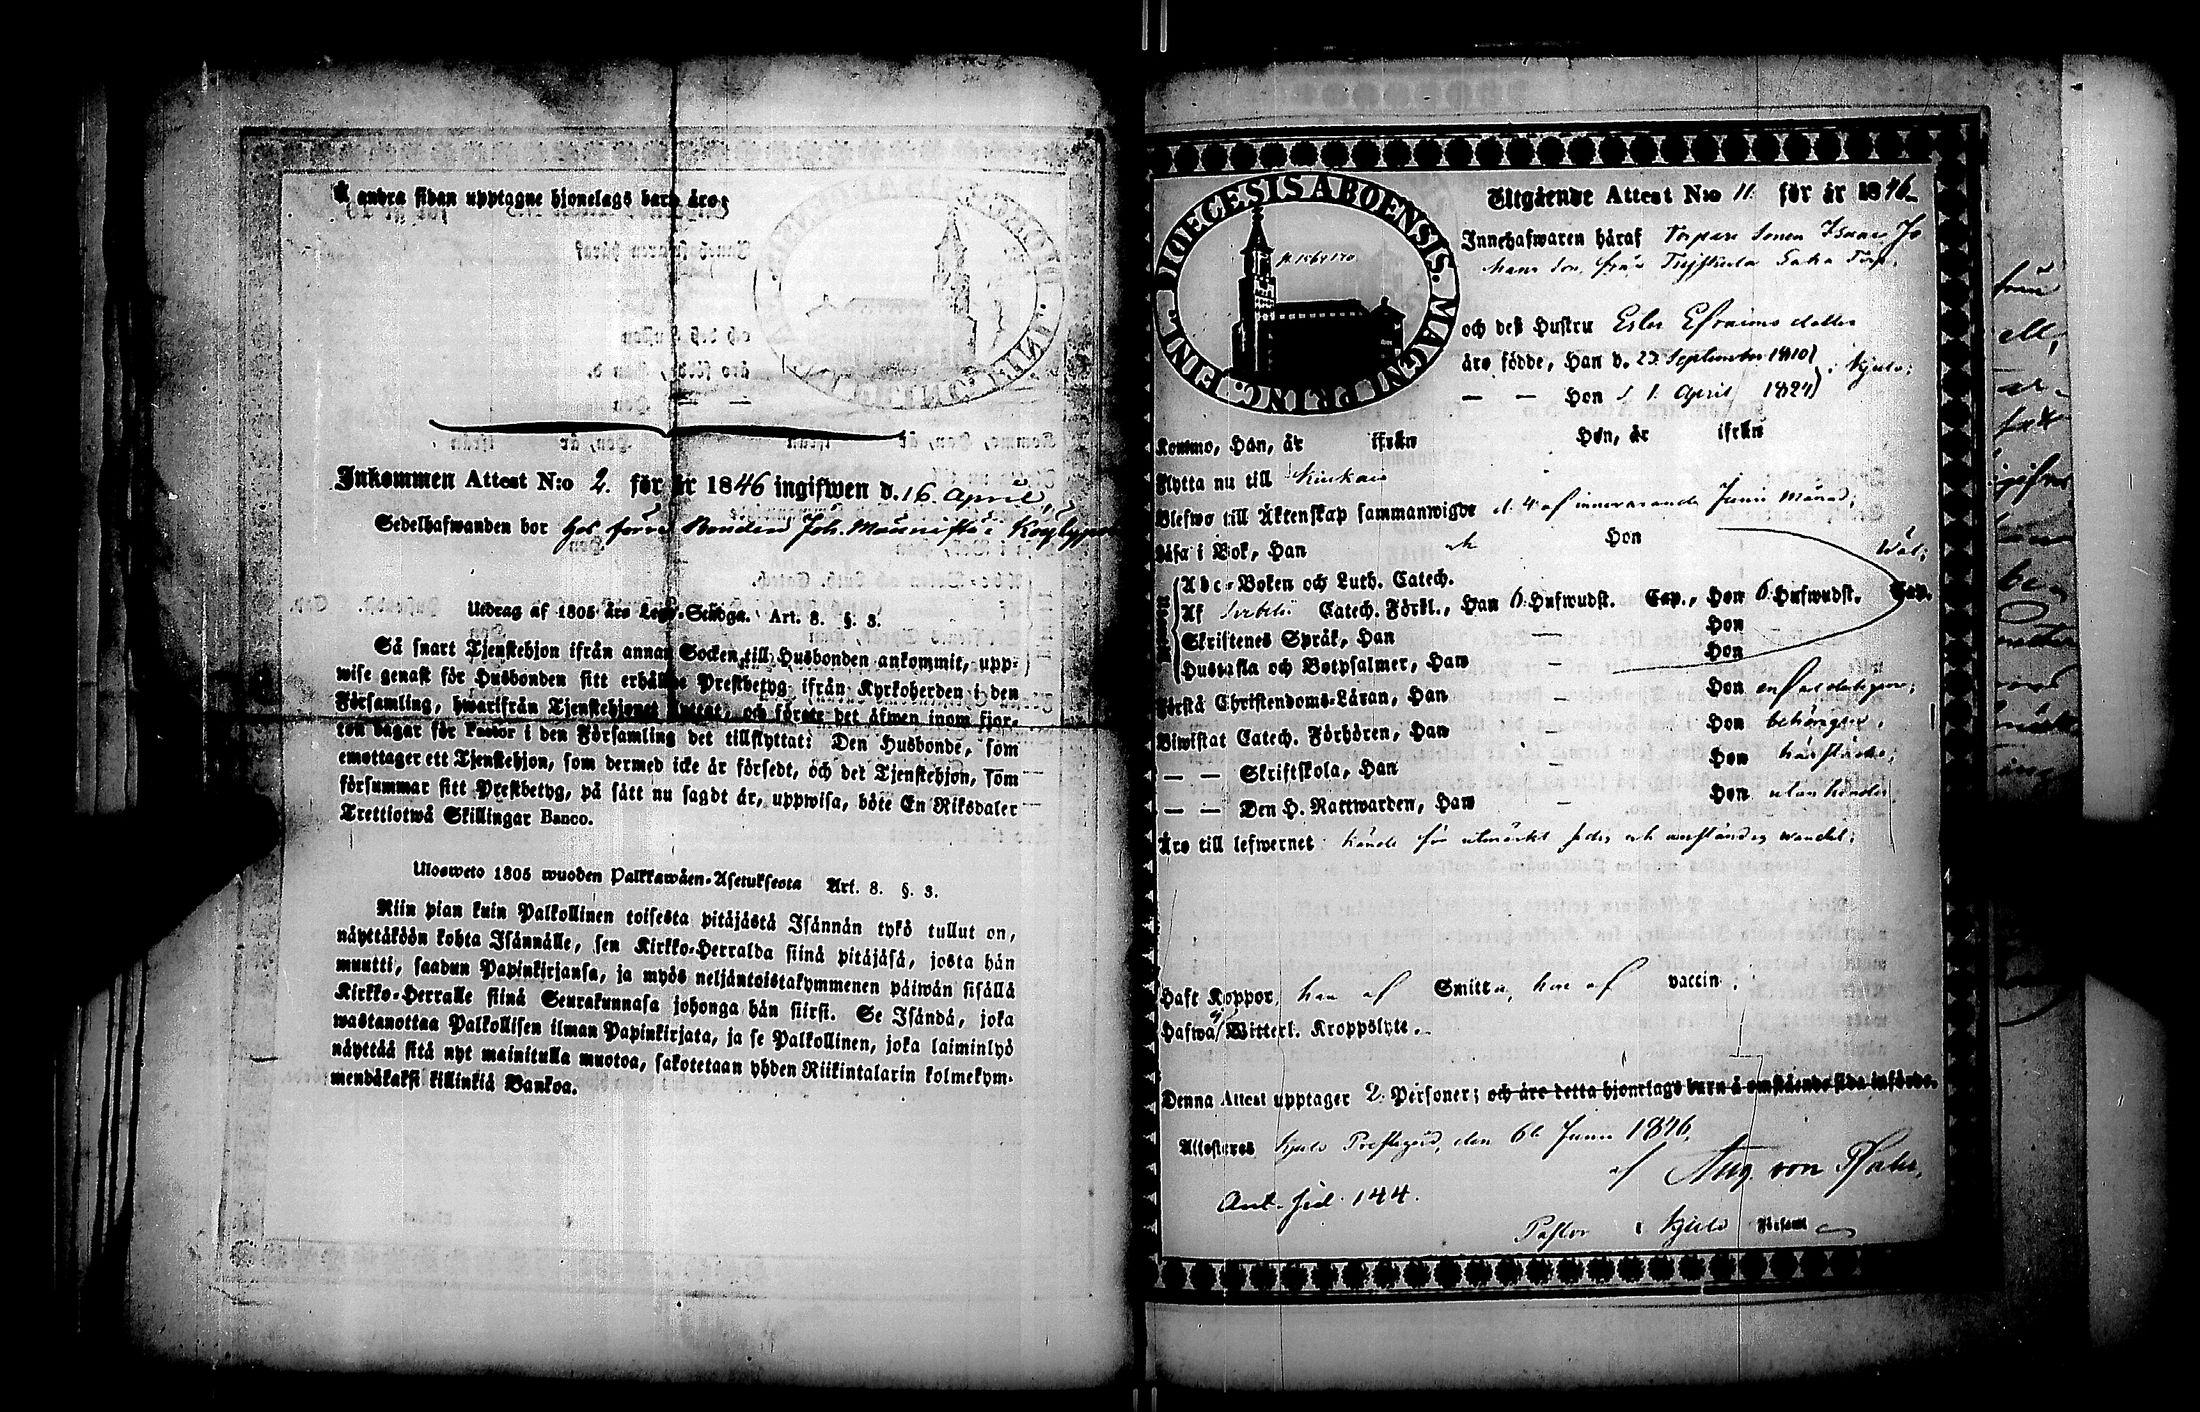 Å andra sidan upptagne hjonelags barn äro:
Inkommen Attest N:o 2. för år 1846 ingifwen d. 16 April
Sedelhafwanden bor hos förre Bonden Joh. Maunista i
Utdrag af 1805 års Lego-Stadga. Art. 8. §. 3.
Så snart Tjenstehjon ifrån annan Socken till Husbonden ankommit, upp-
wise genast för Husbonden sitt erhållne Prestbetyg ifrån Kyrkoherden i den
Församling, hwarifrån Tjenstehjonet flyttat, och förete det äfwen inom fjor-
ton dagar för Pastor i den Församling det tillflyttat: Den Husbonde, som
emottager ett Tjenstehjon, som dermed icke är försedt, och det Tjenstehjon, som
försummar sitt Prestbetyg, på sätt nu sagdt är, uppwisa, böte En Riksdaler
Trettiotwå Skillingar Banco.
Ulosweto 1805 wuoden Palkkawäen-Asetuksesta Art. 8. §. 3.
Niin pian kuin Palkollinen toisesta pitäjästä Isännän tykö tullut on,
näyttäköön kohta Isännälle, sen Kirkko-Herralda siinä pitäjäsä, josta hän
muutti, saadun Papinkirjansa, ja myös neljäntoistakymmenen päiwän sisällä
Kirkko-Herralle siinä Seurakunnasa johonga hän siirsi. Se Isändä, joka
wastanottaa Palkollisen ilman Papinkirjata, ja se Palkollinen, joka laiminlyö
näyttää sitä nyt mainitulla muotoa, sakotetaan yhden Riikintalarin kolmekym-
mendäkaksi killinkiä Bankoa.
DIOECESIS ABOENSIS. MAGNI PRINC. FINL.
Utgående Attest N:o 11. för år 1846
Innehafwaren häraf Torpare Sonen Isaac Jo
hans son från Torp.
och deß Hustru Ester Efraims dotter
äro födde, Han d. 23 September 1810 i Kjulo;
— — Hon d. 1 April 1824
Kommo, Han, år ifrån Hon, år ifrån
Flytta nu till Kiukais
Blefwo till Äktenskap sammanwigde d. 4 af innevarande Junii Månad;
Läsa i Bok, Han och Hon Wäl;
Abc-Boken och Luth. Catech.
Af Catech. Förkl., Han 6 Hufwudst. Cap., Hon 6 Hufwudst. Cap.
Skriftenes Språk, Han — Hon
Hustafla och Botpsalmer, Han — Hon
Förstå Christendoms-Läran, Han — Hon enfaldeligen;
Biwistat Catech. Förhören, Han — Hon behörigen;
— — Skriftskola, Han — Hon härstädes;
— — Den H. Nattwarden, Han — Hon utan hinder
Äro till lefwernet kände för utmärkt sedig och anständig wandel;
Haft Koppor, han af Smitta, hon af vaccin;
Hafwa ej Witterl. Kroppslyte.
Denna Attest upptager 2 Personer; och äro detta hjonelags barn å omstående sida införde.
Attesteras Kjulo Prestegård, den 6te Junii 1846,
af Aug. von Pfaler,
Ant. sid. 144.
Pastor i Kjulo Församl